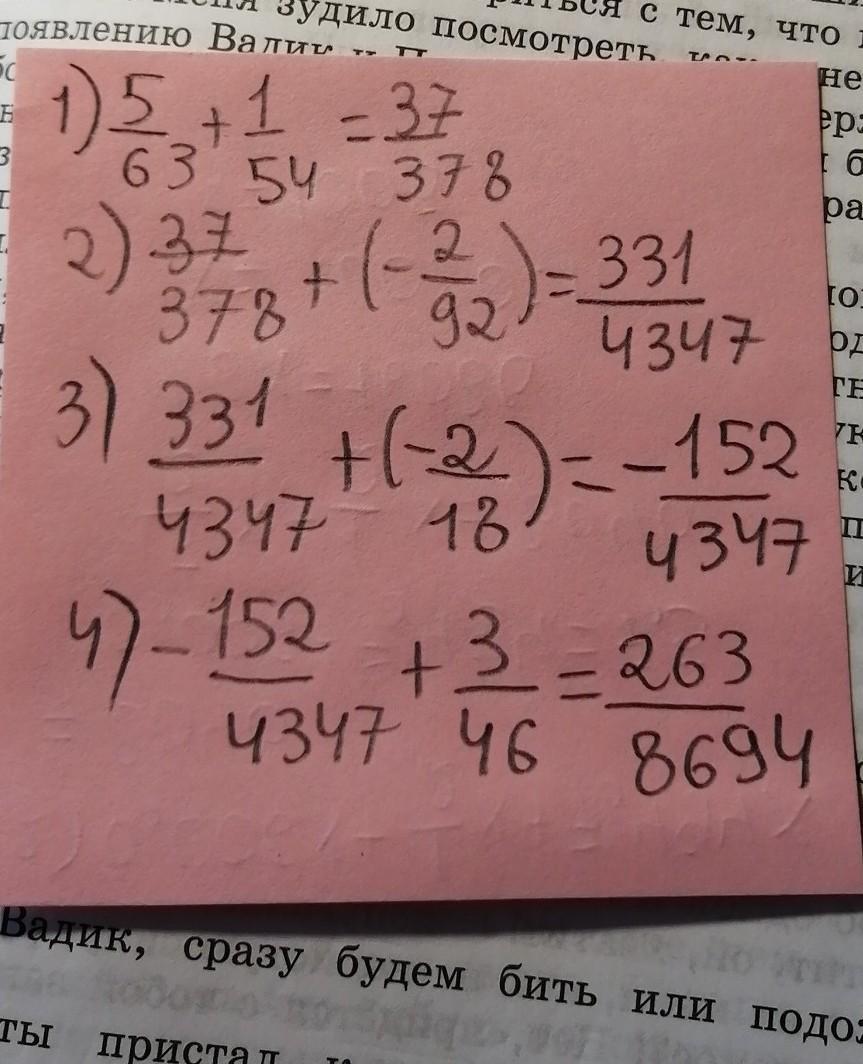 зудило посмотреть
ться с тем, что
появлению Вадик и
не
1) 5/63 + 1/54 = 37/378
2) 37/378 + (-2/92) = 331/4347
3) 331/4347 + (-2/18) = -152/4347
4) -152/4347 + 3/46 = 263/8694
Вадик, сразу будем бить или
ты пристал